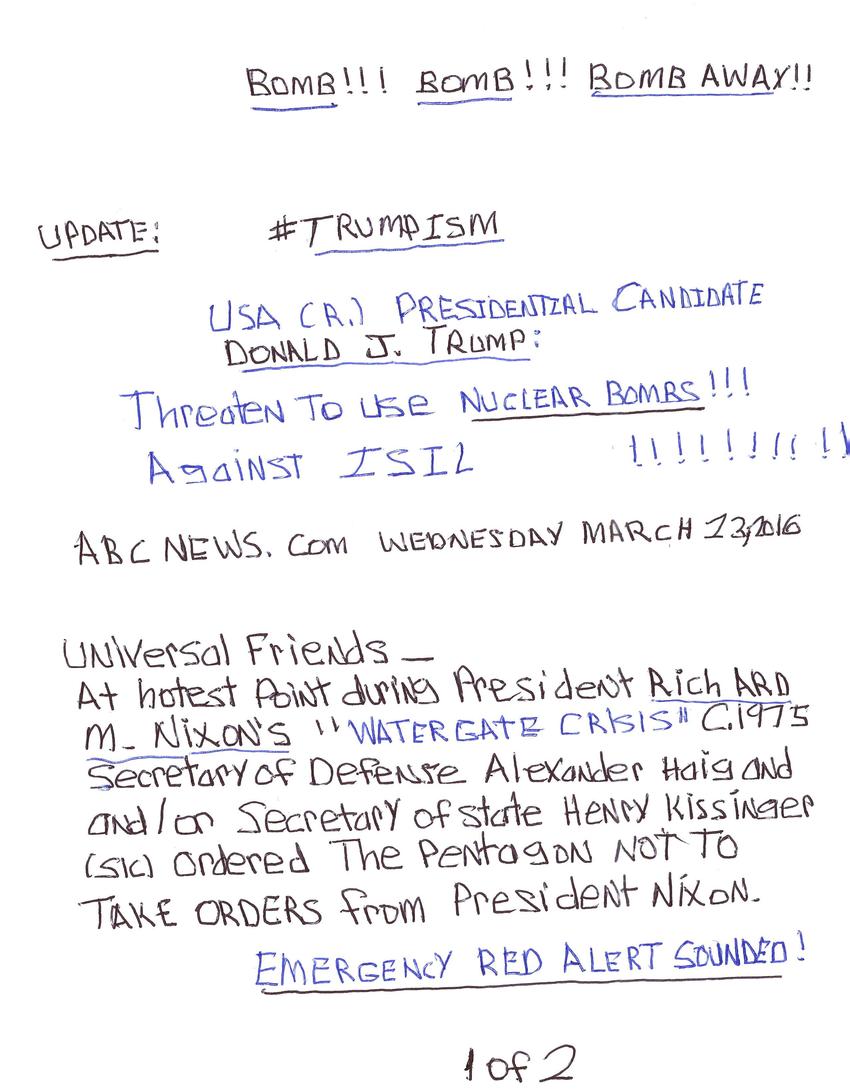 BOMB!!! BOMB!!! BOMB AWAY!!
UPDATE: #TRUMPISM
USA (R.) PRESIDENTIAL CANDIDATE
DONALD J. TRUMP:
Threaten To use NUCLEAR BOMBS!!!
Against ISIL !!!!!!!!!!
ABC NEWS. COM WEDNESDAY MARCH 23,2016
UNIVersal Friends —
At hotest Point during President RichARD
M- NIXON'S "WATERGATE CRISIS" C.1975
Secretary of Defense Alexander Haig and
and/or Secretary of state HENRY Kissinger
(SIC) ordered The Pentagon NOT TO
TAKE ORDERS from President Nixon.
EMERGENCY RED ALERT SOUNDED!
1 of 2